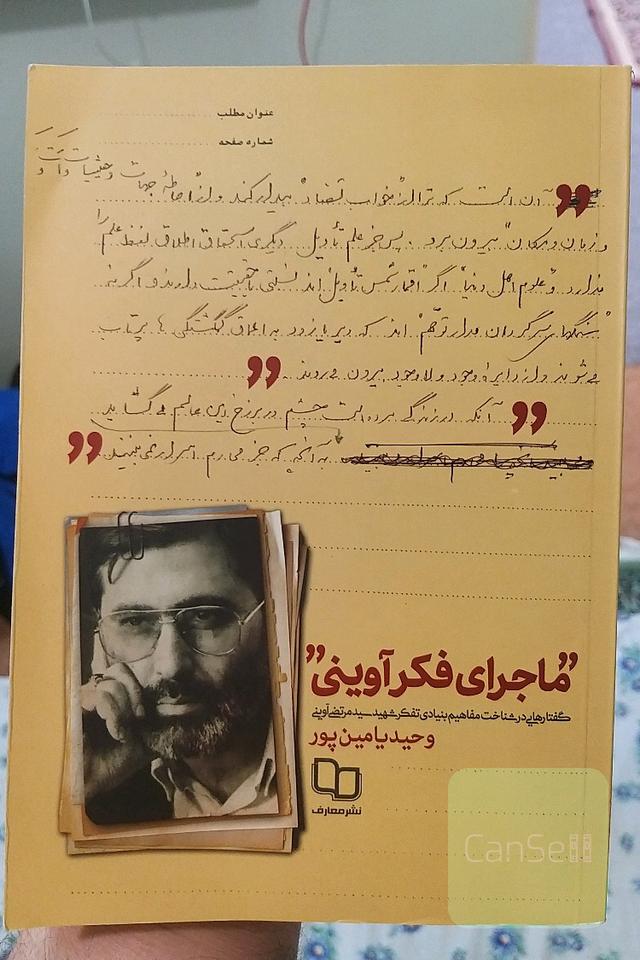 عنوان مطلب
شماره صفحه
جهات و حیثیات
آن است که ترا از "خواب تضاد" بیدار کند و از احاطهٔ
و زمان و مکان" بیرون برد. پس جز علم تأویل دیگری استحقاق اطلاق لفظ علم را
ندارد و "علوم اهل دنیا" اگر "اقمار شمس تأویل" اند نسبتی با حقیقت دارند و اگر نه
"سنگهای سرگردان مدار توهّم" اند که دیر یا زود به اعماق گمگشتگی ها پرتاب
می شوند و از دایرهٔ وجود و لاوجود بیرون می روند.
”
آنکه در زندگی مرده است چشم در برزخ این عالم می گشاید
به آنچه که جز مردم اسرار نمی بینند
”ماجرای فکر آوینی”
گفتارهایی در شناخت مفاهیم بنیادی تفکر شهید سید مرتضی آوینی
وحید یامین پور
نشر معارف
CanSell